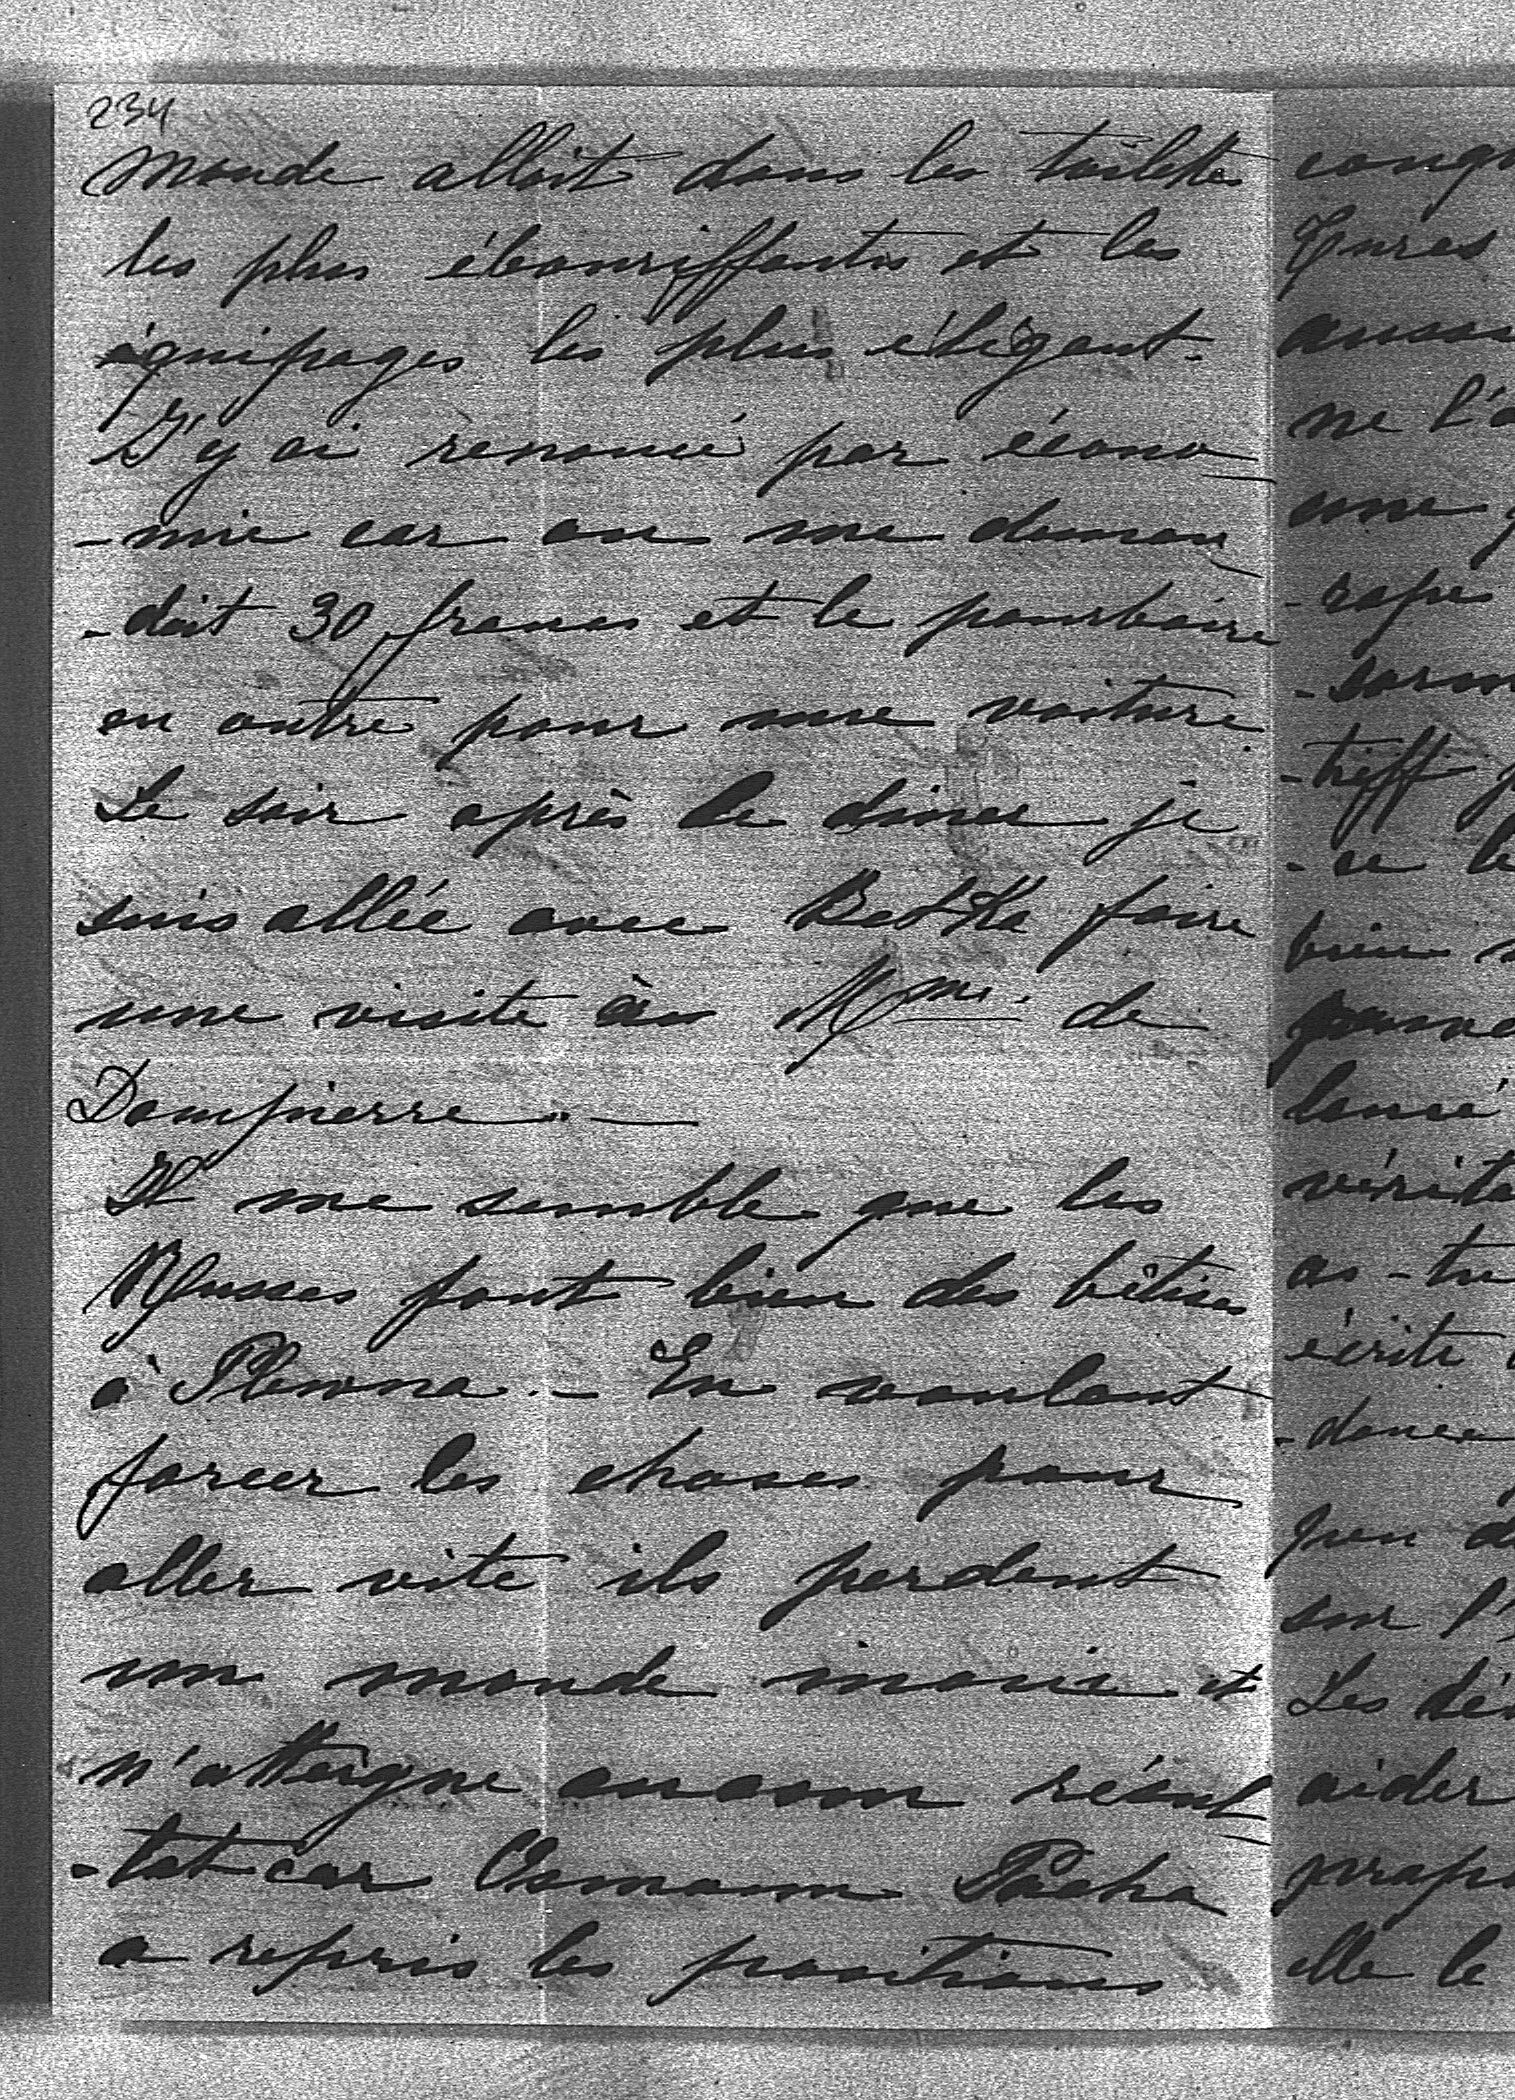 234
monde allait dans les toilettes
les plus ébouriffantes et les
équipages les plus élégant.
J'y ai renoncé par écono
-mie car on me deman
-dait 30 francs et le pourboire
en outre pour une voiture
Le soir après le diner je
suis allée avec Betka faire
une visite à Mme. de
Dampierre. —
Il me semble que les
Russes font bien des bêtises
à Plewna. — En voulant
forcer les choses pour
aller vite ils perdent
un monde inouie et
n'atteigne aucun résul
-tat car Osmann Pacha
a repris les positions
ne l'a
-rape
-treff
bien
lancé
vérita
as-tu
écrite
-dance
peu d
sur l'
Les dé
aider
elle le